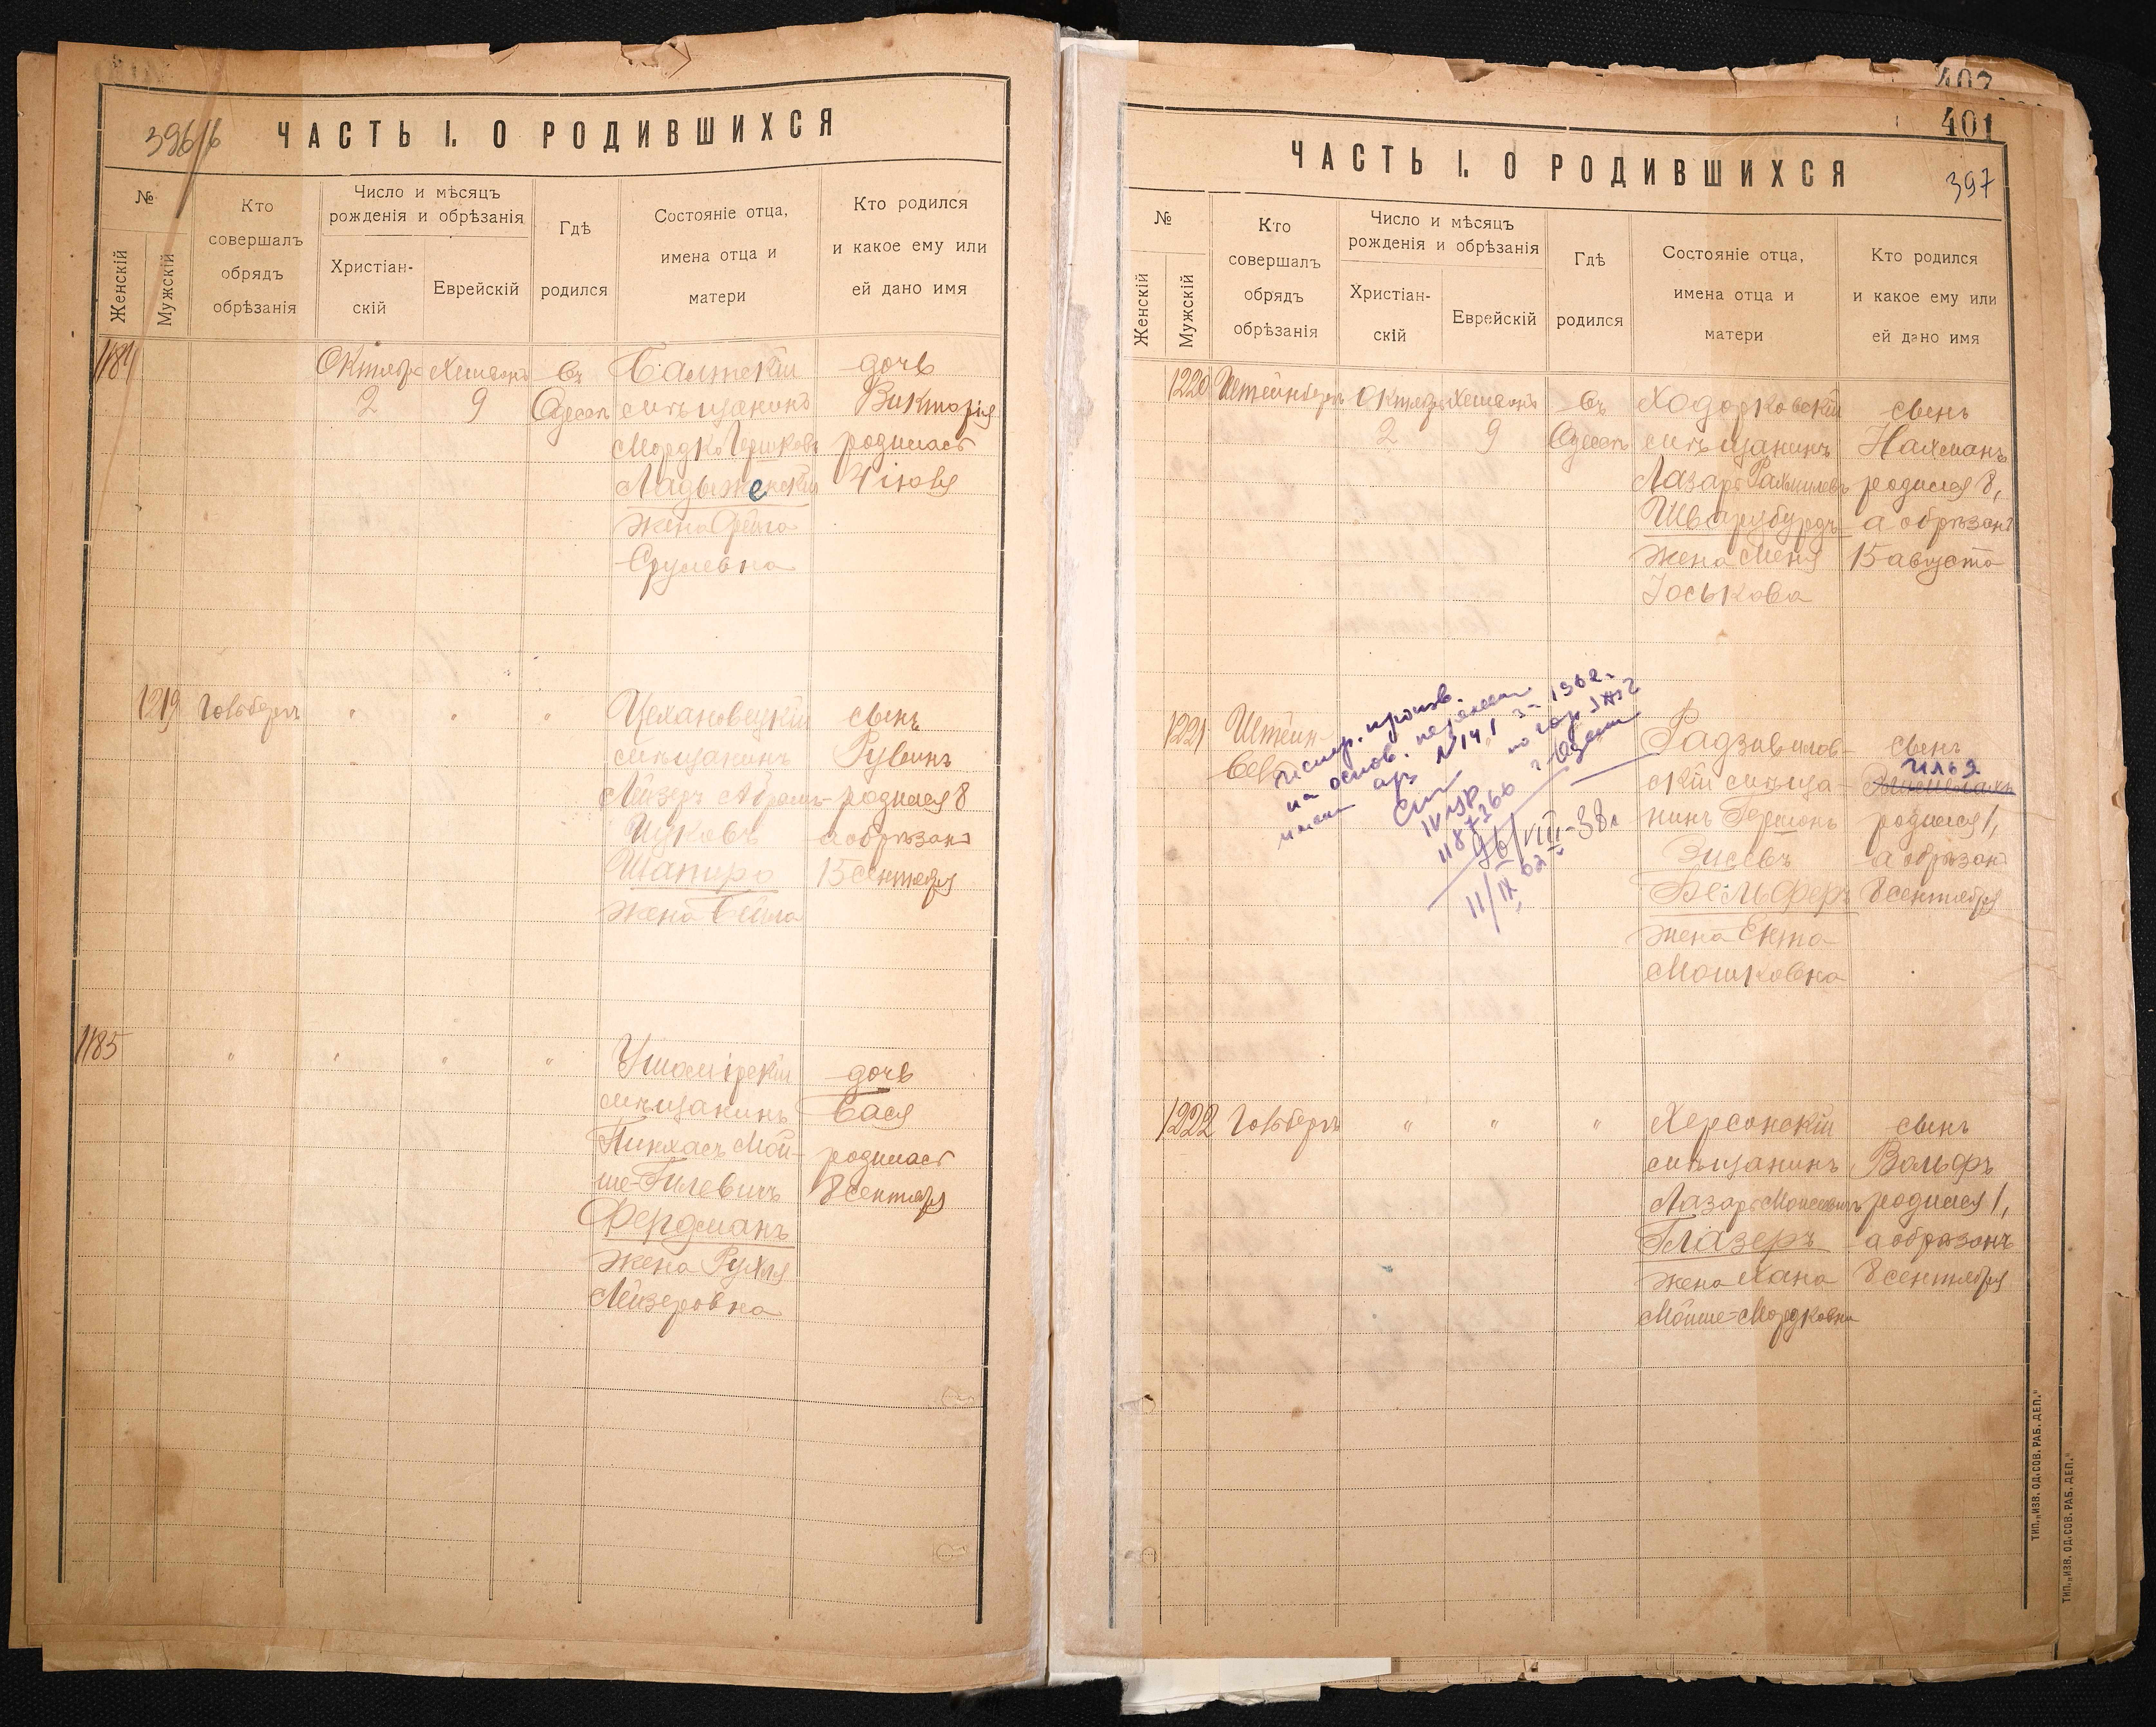 ЧАСТЬ I. О РОДИВШИХСЯ
№
Женскій
Мужскій
Кто
совершалъ
обрядъ
обрѣзанія
Число и мѣсяцъ
рожденія и обрѣзанія
Христіан-
скій
Еврейскій
Гдѣ
родился
Состояніе отца,
имена отца и
матери
Кто родился
и какое ему или
ей дано имя
1184
Октябр
2
9
Въ
Одессѣ
Балтскій
мѣщанинъ
Мордко Гершковъ
Ладыженскій
жена Фейга
Срулевна
дочь
Викторія
родилась
4 іюля
1219
Гольдбергъ
" " "
Цехановецкій
мѣщанинъ
Лейзеръ Абрамъ-
Ицковъ
Шапиро
жена Бейла
сынъ
Рувинъ
родился 8
а обрѣзанъ
15 сентября
1185
" " " "
Ушомірскій
мѣщанинъ
Пинхасъ Мой-
ше-Гилевичъ
Фердманъ
жена Рухля
Лейзеровна
дочь
Бася
родилась
8 сентября
401
ЧАСТЬ I. О РОДИВШИХСЯ
397
№
Женскій
Мужскій
Кто
совершалъ
обрядъ
обрѣзанія
Число и мѣсяцъ
рожденія и обрѣзанія
Христіан-
скій
Еврейскій
Гдѣ
родился
Состояніе отца,
имена отца и
матери
Кто родился
и какое ему или
ей дано имя
1220
Штейнбергъ
Октября
2
9
Въ
Одессѣ
Ходорковскій
мѣщанинъ
Лазарь Рахмилевъ
Шварцбурдъ
жена Меня
Іоськова
сынъ
Нахманъ
родился 8,
а обрѣзанъ
15 августа
1221
Штейн-
на основ.
№ 141
1962г.
11/IX 62
Радзивилов-
скій мѣща-
нинъ Гершонъ
Зисевъ
Бельферъ
жена Ента
Мошковна
сынъ
Илья
родился 1,
а обрѣзанъ
8 сентября
1222
Гольдбергъ
" " "
Херсонскій
мѣщанинъ
Лазарь Моисеевичъ
Глазеръ
жена Хана
Мойше-Мордковна
сынъ
Вольфъ
родился 1,
а обрѣзанъ
8 сентября
ТИП. „ИЗВ. ОД. СОВ. РАБ. ДЕП."
ТИП. „ИЗВ. ОД. СОВ. РАБ. ДЕП."